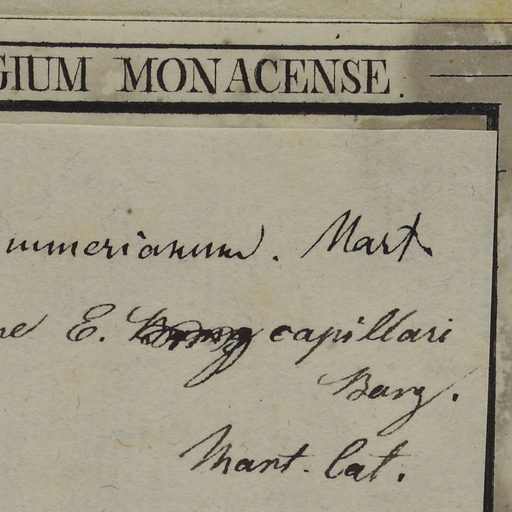 GIUM MONACENSE.
mmerianum. Mart.
ne E. capillari
Bung.
Mart. Cat.